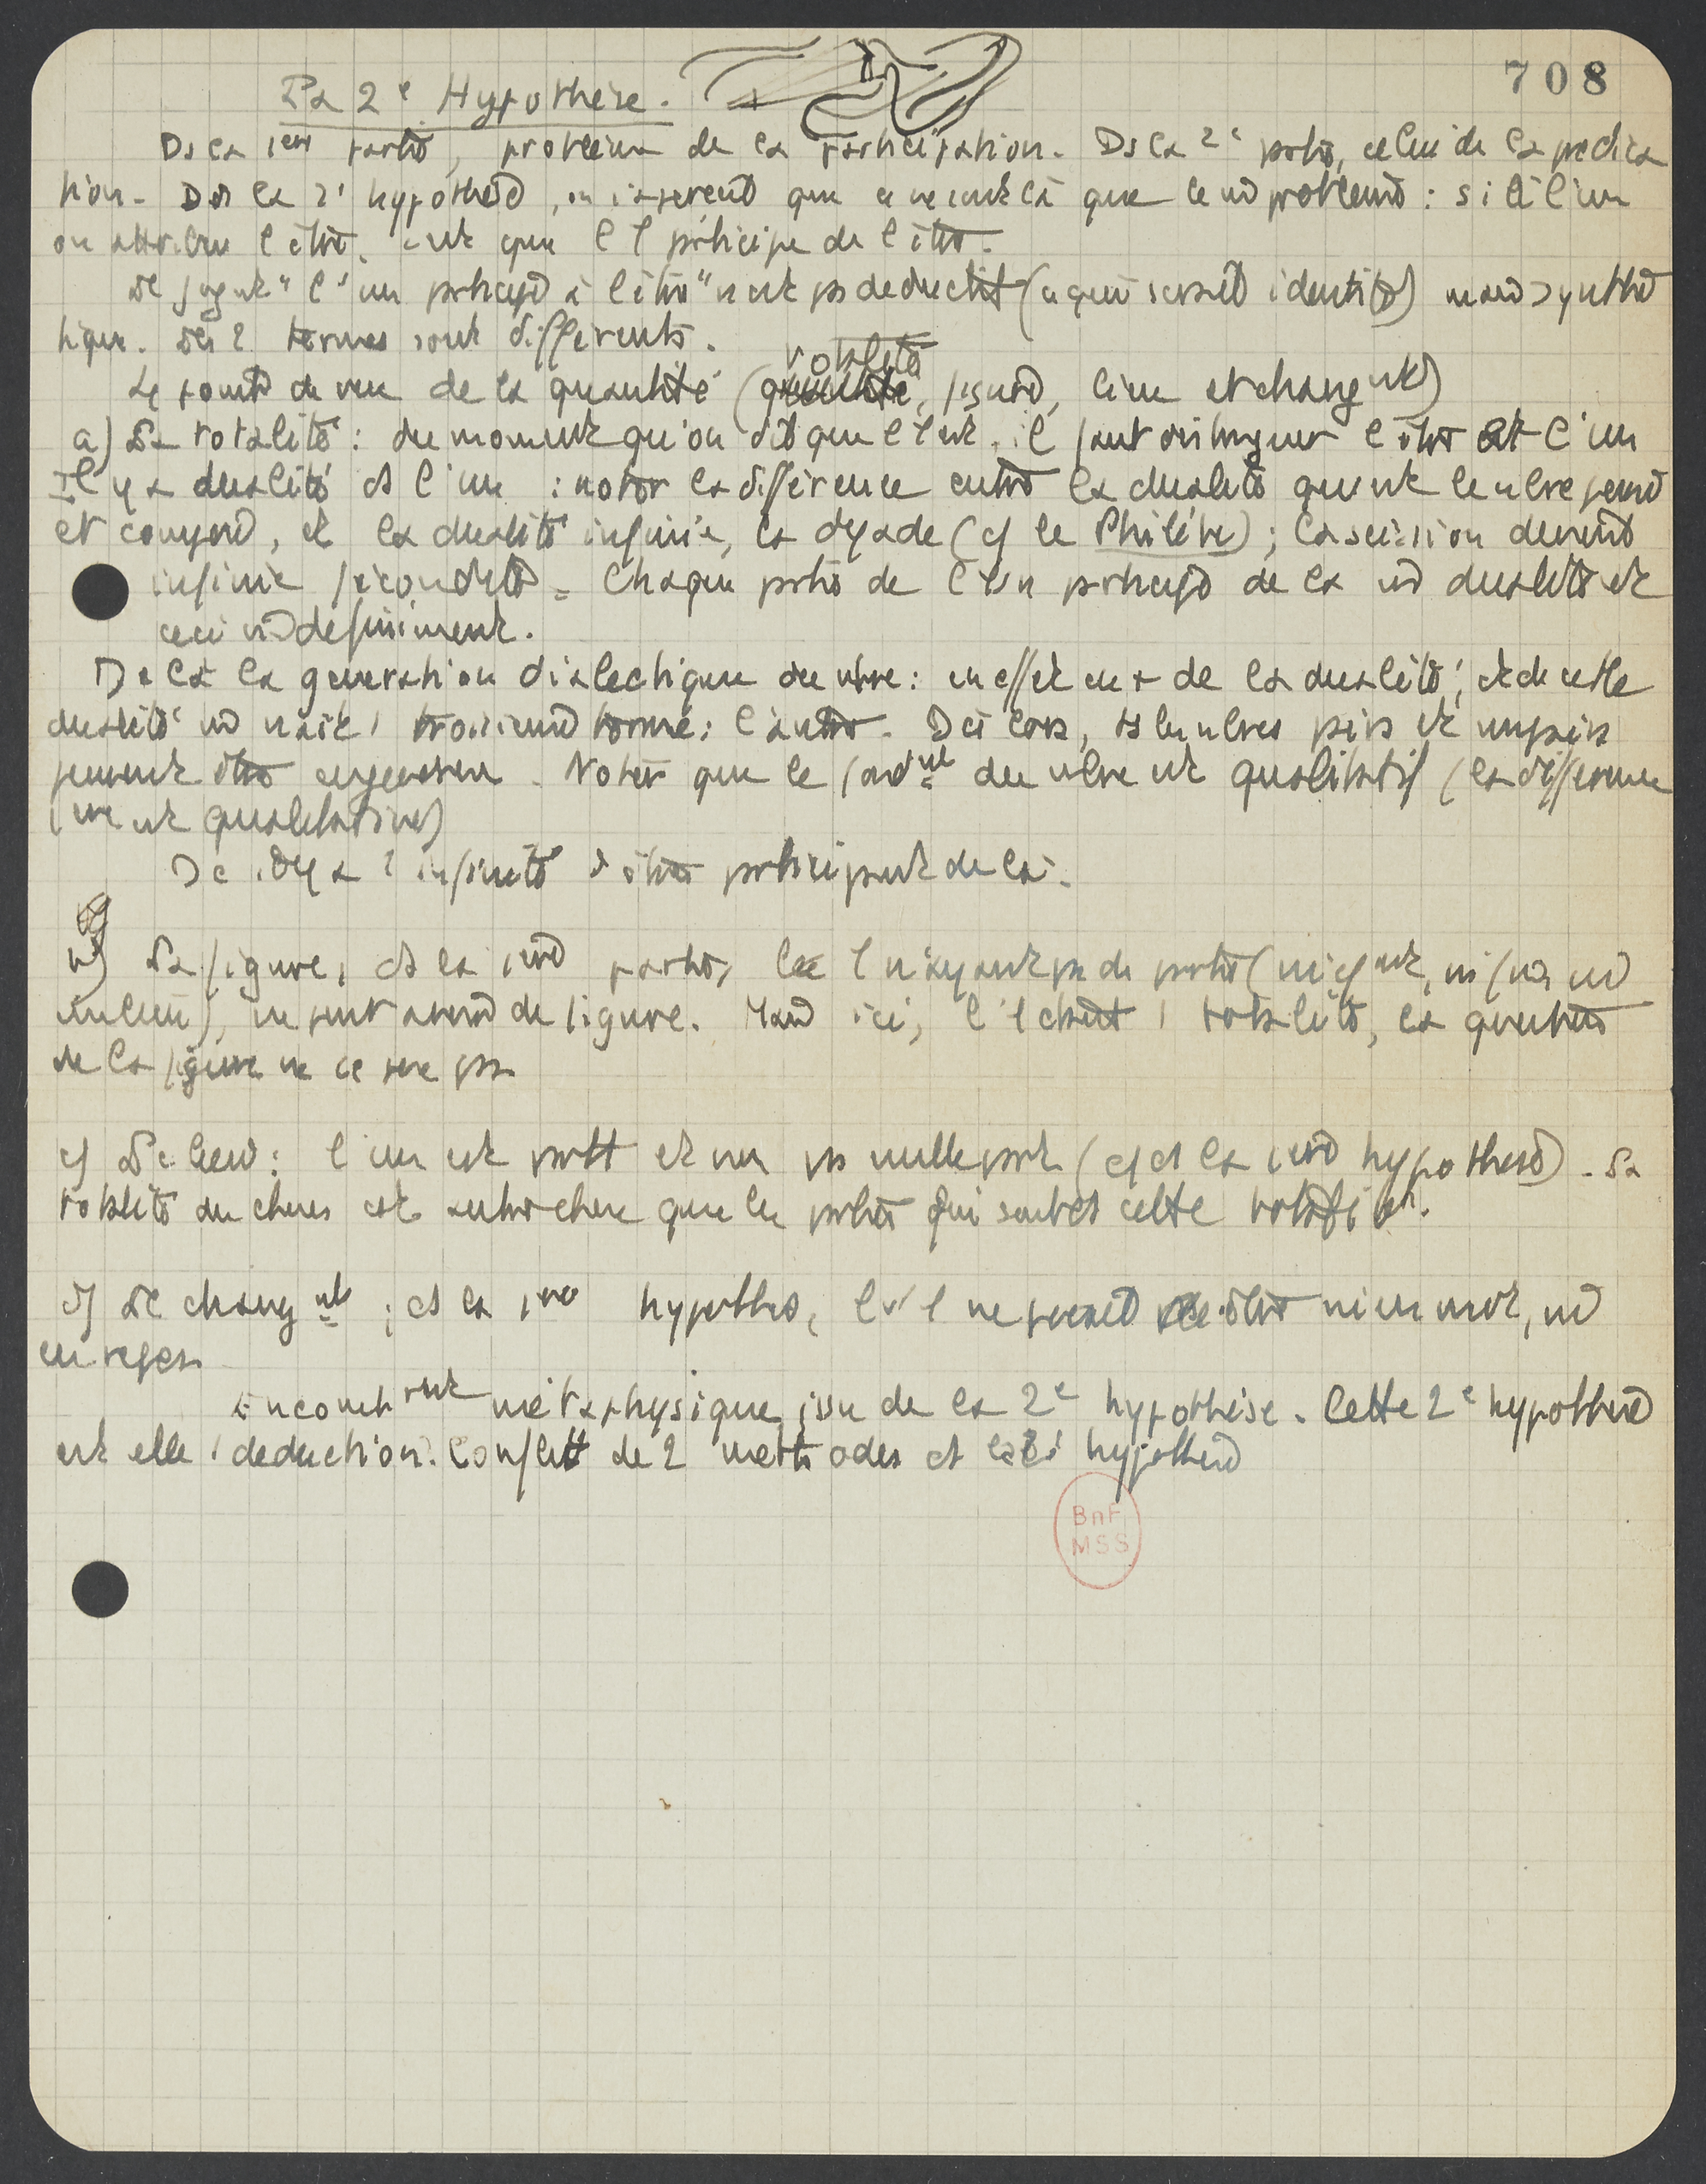 708
La 2e Hypothèse.
Ds la 1ère partie, problème de la participation. Ds la 2e partie, celui de la prédica
tion. Ds la 2e hypothèse, on s'aperçoit que ce ne sont là que le m problème : si à l'un
on attribue l'être, c'est que l'1 participe de l'être.
Le jugmt "l'un participe à l'être" n'est ps déductif (ce qui serait identité) mais synthé
tique. Les 2 termes sont différents.
totalité
Le point de vue de la quantité (figure, lieu et changmt)
a) La totalité : du moment qu'on dit que l'1 est, il faut distinguer l'être et l'un
Il y a dualité ds l'un : noter la différence entre la dualité qu'est le nbre
et , et la dualité infinie, la dyade (cf le Philèbe) ; la scission devient
infinie fécondité. Chaque partie de l'Un participe de la m dualité et
ceci indéfiniment.
De là la génération dialectique du nbre : en effet on a de la dualité, et de cette
dualité m naît 1 troisième terme : l'autre. Dès lors, ts les nbres pairs et impairs
peuvent être engendrés. Noter que le fondmt du nbre est qualitatif (la différence
est qualitative)
De il y a 1 infinité d'êtres participant de là.
b) La figure, ds la 1ère partie, l'1 n'ayant ps de parties (ni commt, ni fin, ni
milieu), ne peut avoir de figure. Mais ici, l'1 étant 1 totalité, la question
de la figure ne se pose pas
c) Le lieu : l'un est partt et non ps nulle part (cf ds la 1ère hypothèse). La
totalité du choses est autre chose que les parties qui sont ds cette totalité.
d) Le changmt ; ds la 1ère hypothèse, l'1 ne pouvait être ni en mvt, ni
en repos
métaphysique issu de la 2e hypothèse. Cette 2e hypothèse
est elle 1 déduction. Conflit de 2 méthodes ds la 2e hypothèse
BnF
MSS